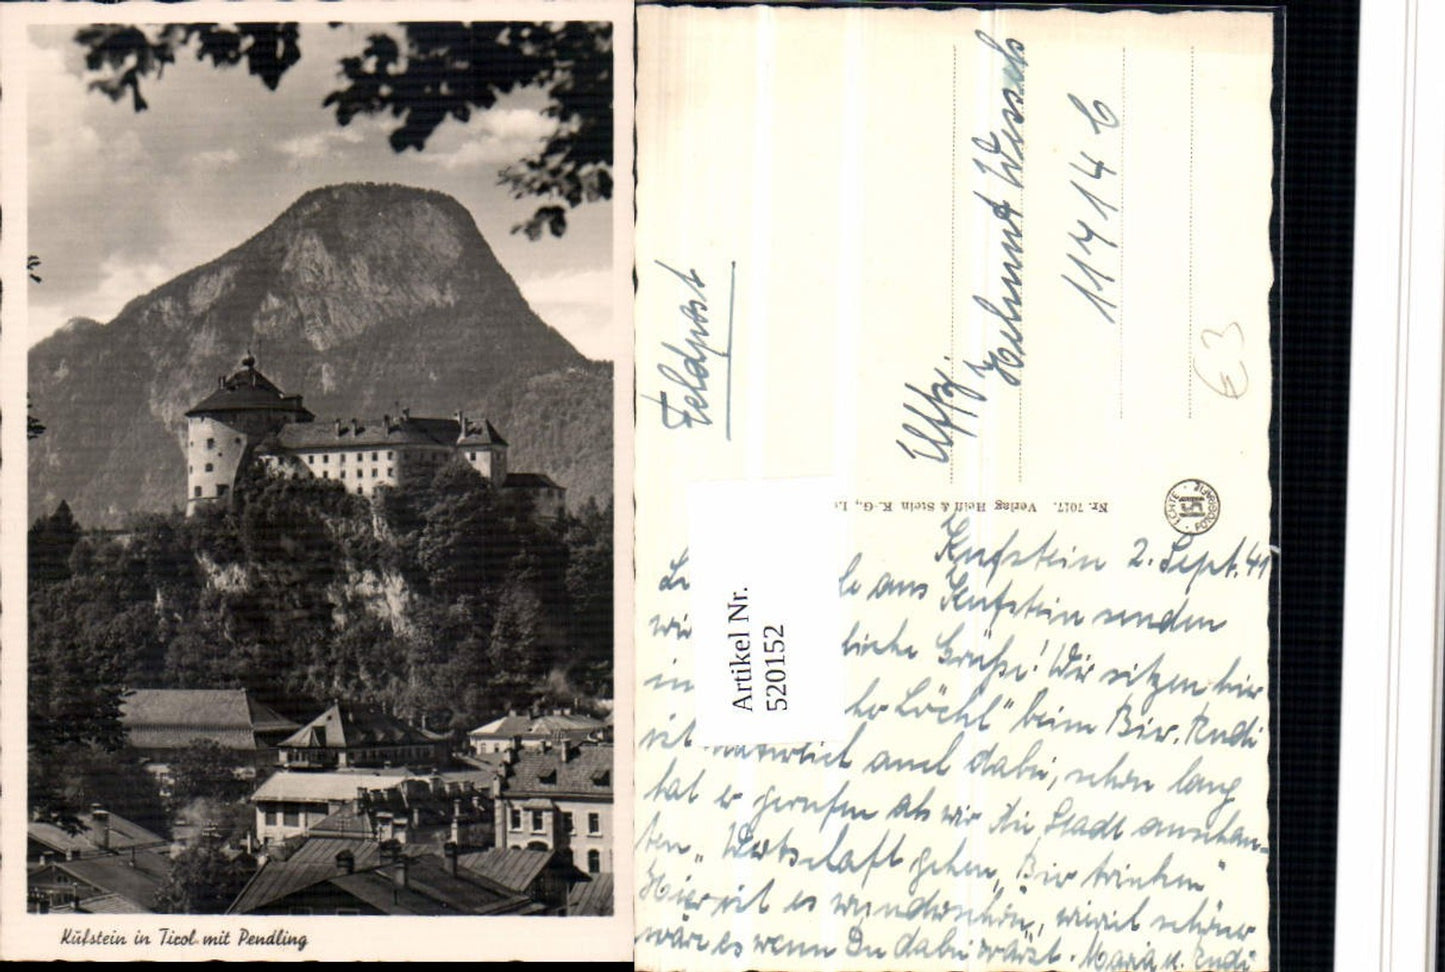 Kufstein in Tirol mit Pendling
Feldpost
Uffz.
Helmut Wessels
11414 C
€3
Nr. 7017. Verlag Heiß & Stein K.-G.,
ECHTE FOTOGRAFIE
Artikel Nr.
520152
Kufstein 2. Sept. 41
aus Kufstein senden
wir liche Grüße! Wir sitzen hier
in Löchl" beim Bier. Rudi
auch dabei, schon lang
hat er gerufen als wir die Stadt anschau-
ten „Wirtschaft gehen, Bier trinken"
Hier ist es wunderschön, wieviel schöner
wäre es wenn Du dabei wärst. Maria u. Rudi